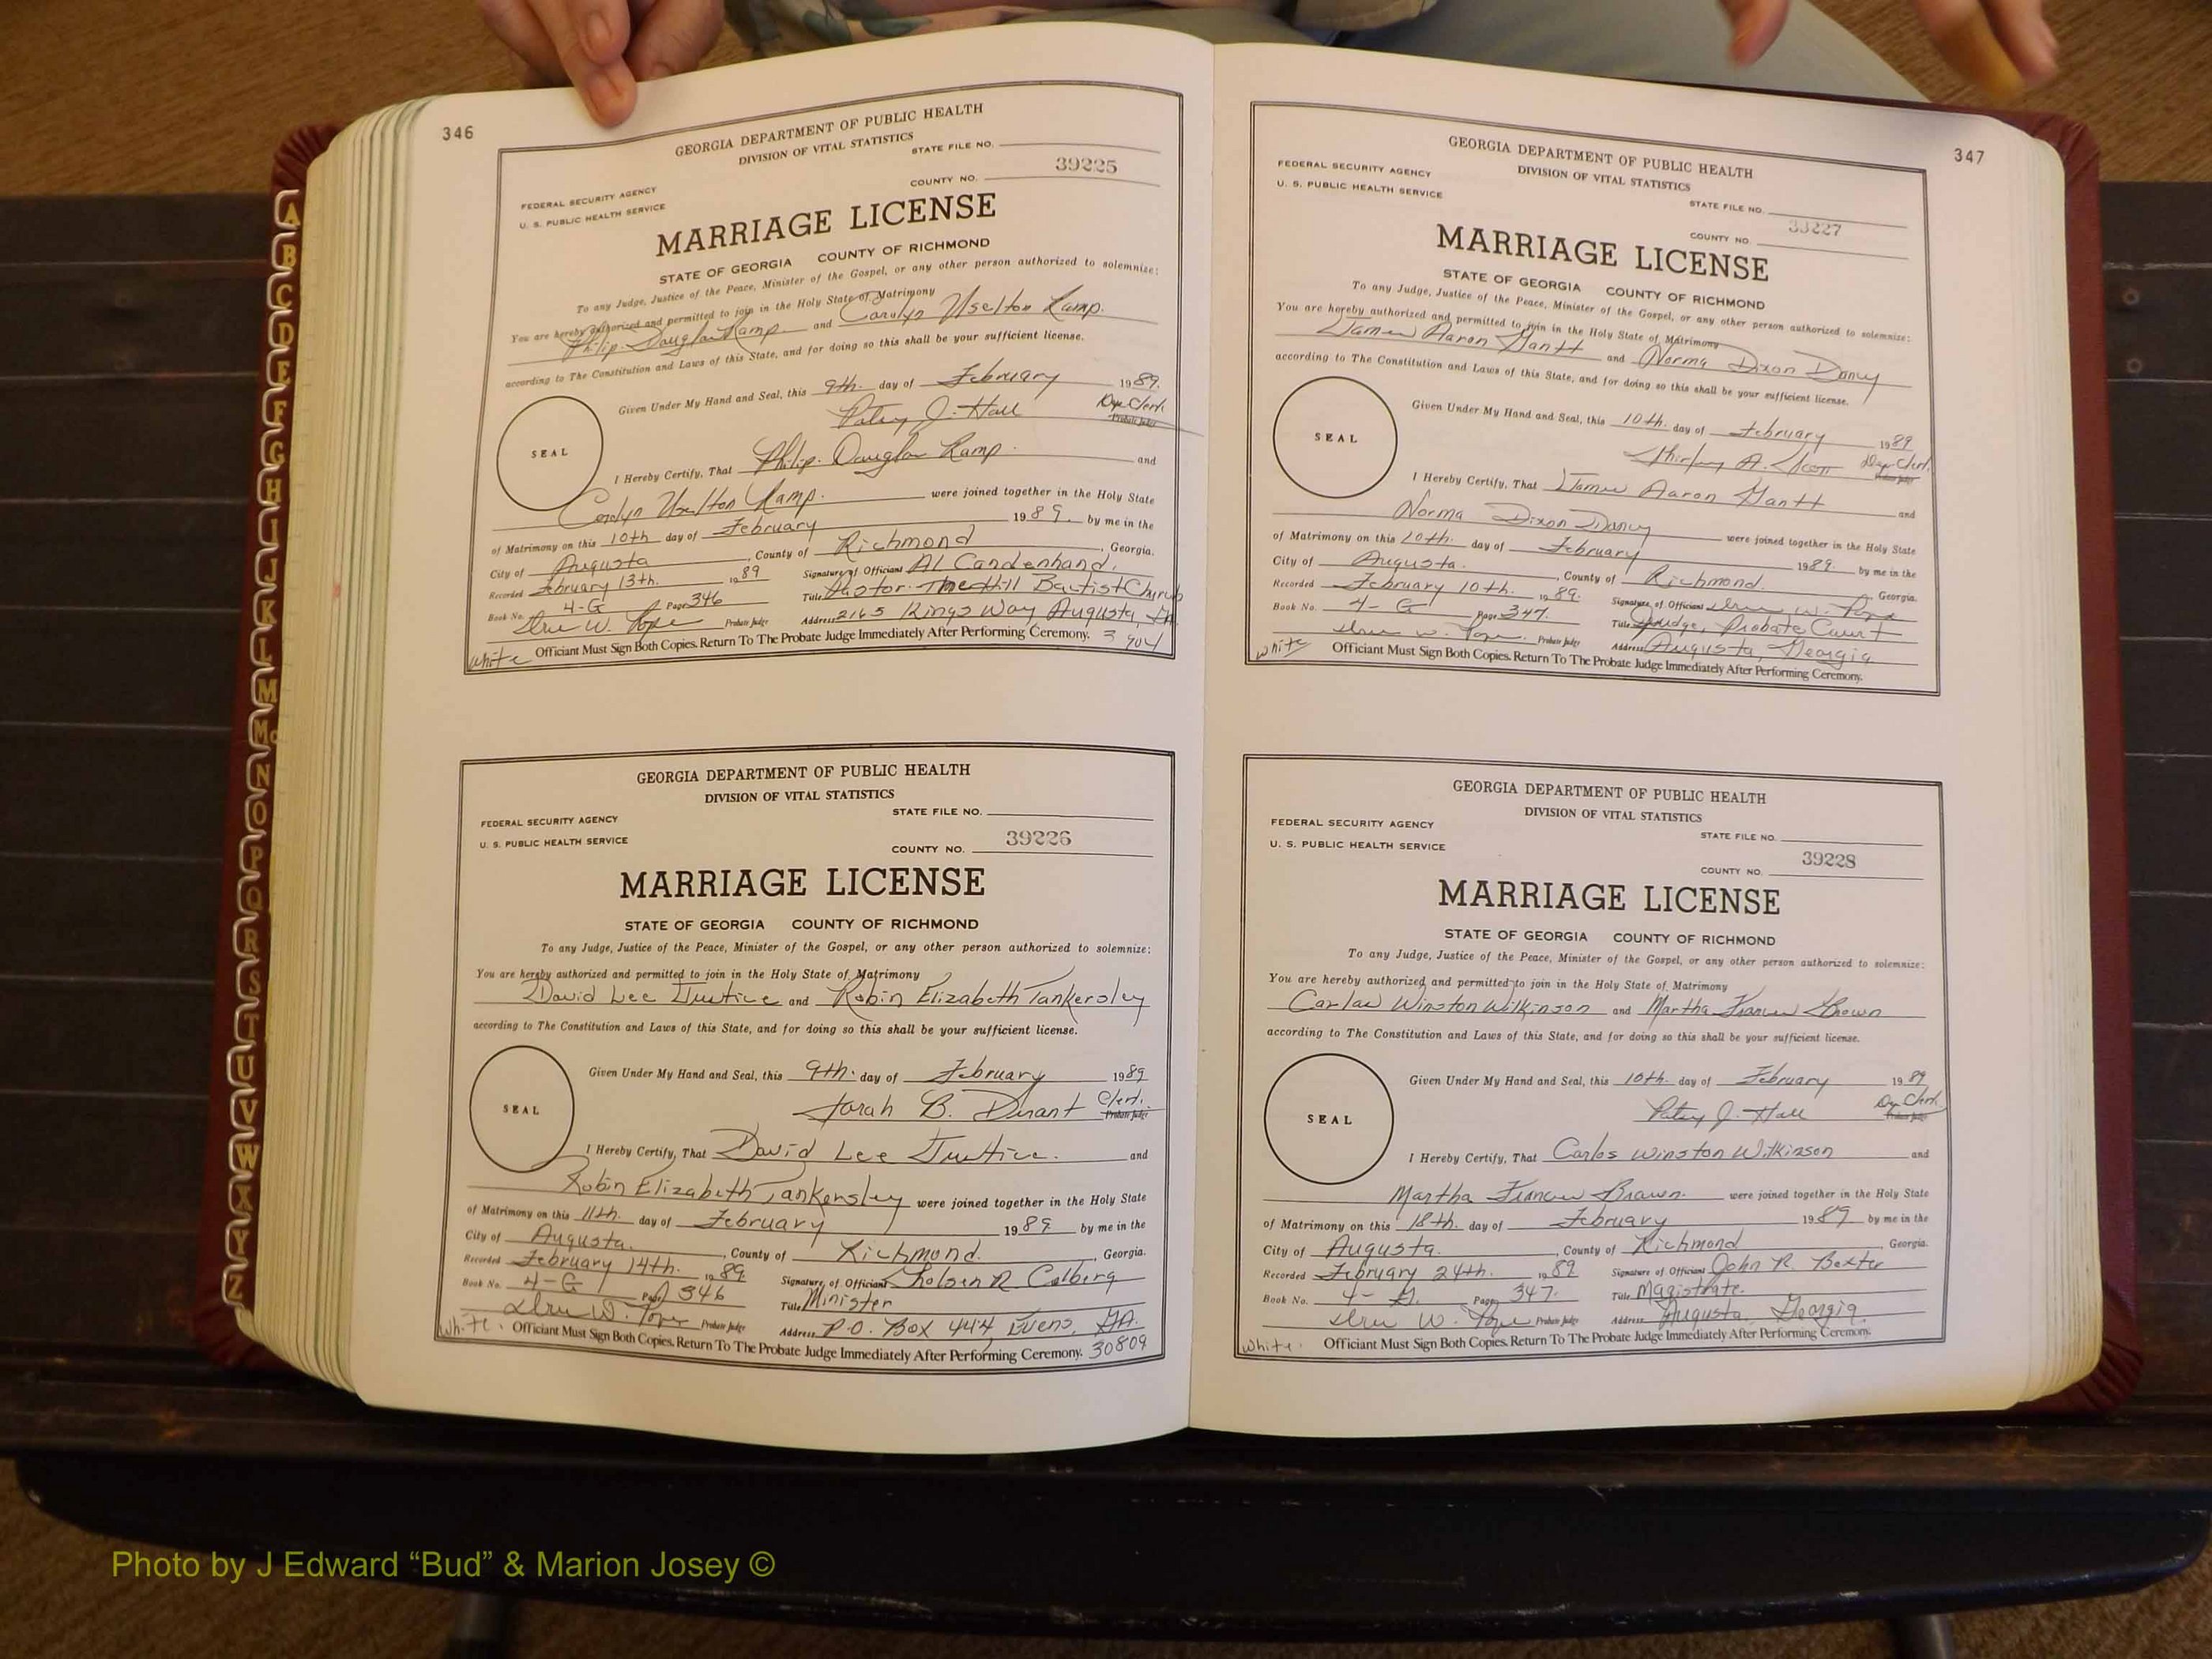 346
GEORGIA DEPARTMENT OF PUBLIC HEALTH
DIVISION OF VITAL STATISTICS
STATE FILE NO.
39225
COUNTY NO.
FEDERAL SECURITY AGENCY
U. S. PUBLIC HEALTH SERVICE
MARRIAGE LICENSE
STATE OF GEORGIA COUNTY OF RICHMOND
To any Judge, Justice of the Peace, Minister of the Gospel, or any other person authorized to solemnize:
You are hereby authorized and permitted to join in the Holy State of Matrimony
Philip Douglas Kamp and Carolyn Uselton Kamp.
according to The Constitution and Laws of this State, and for doing so this shall be your sufficient license.
Given Under My Hand and Seal, this 9th. day of February 1989.
Patsy J. Hall Dep Clerk. Probate Judge
SEAL
I Hereby Certify, That Philip Douglas Kamp. and
Carolyn Uselton Kamp. were joined together in the Holy State
of Matrimony on this 10th day of February 1989. by me in the
City of Augusta, County of Richmond, Georgia.
Recorded February 13th. 1989 Signature of Official Al
Book No. 4-G Page 346 Title Pastor Hill Baptist Church
Probate Judge Address 2165 Kings Way Augusta, GA
white Officiant Must Sign Both Copies. Return To The Probate Judge Immediately After Performing Ceremony. 3 904
GEORGIA DEPARTMENT OF PUBLIC HEALTH
DIVISION OF VITAL STATISTICS
STATE FILE NO.
FEDERAL SECURITY AGENCY
39226
U. S. PUBLIC HEALTH SERVICE
COUNTY NO.
MARRIAGE LICENSE
STATE OF GEORGIA COUNTY OF RICHMOND
To any Judge, Justice of the Peace, Minister of the Gospel, or any other person authorized to solemnize:
You are hereby authorized and permitted to join in the Holy State of Matrimony
David Lee Justice and Robin Elizabeth Tankersley
according to The Constitution and Laws of this State, and for doing so this shall be your sufficient license.
Given Under My Hand and Seal, this 9th. day of February 1989
Sarah B. Durant Clerk. Probate Judge
SEAL
I Hereby Certify, That David Lee Justice. and
Robin Elizabeth Tankersley were joined together in the Holy State
of Matrimony on this 11th. day of February 1989 by me in the
City of Augusta., County of Richmond., Georgia.
Recorded February 14th. 1989. Signature of Officiant R Colberg
Book No. 4-G Page 346 Title Minister
Probate Judge Address P.O. Box 444 Evens, GA.
white. Officiant Must Sign Both Copies. Return To The Probate Judge Immediately After Performing Ceremony. 30809
347
GEORGIA DEPARTMENT OF PUBLIC HEALTH
DIVISION OF VITAL STATISTICS
FEDERAL SECURITY AGENCY
U. S. PUBLIC HEALTH SERVICE
STATE FILE NO.
39227
COUNTY NO.
MARRIAGE LICENSE
STATE OF GEORGIA COUNTY OF RICHMOND
To any Judge, Justice of the Peace, Minister of the Gospel, or any other person authorized to solemnize:
You are hereby authorized and permitted to join in the Holy State of Matrimony
James Aaron Gantt and Norma Dixon Dancy
according to The Constitution and Laws of this State, and for doing so this shall be your sufficient license.
Given Under My Hand and Seal, this 10th. day of February 1989
Shirley A. Scott Dep Clerk. Probate Judge
SEAL
I Hereby Certify, That James Aaron Gantt and
Norma Dixon Dancy were joined together in the Holy State
of Matrimony on this 10th. day of February 1989. by me in the
City of Augusta., County of Richmond. Georgia.
Recorded February 10th. 1989. Signature of Official W. Pope
Book No. 4-G Page 347. Title Judge, Probate Court
W. Pope. Probate Judge Address Augusta, Georgia
white Officiant Must Sign Both Copies. Return To The Probate Judge Immediately After Performing Ceremony.
GEORGIA DEPARTMENT OF PUBLIC HEALTH
DIVISION OF VITAL STATISTICS
FEDERAL SECURITY AGENCY
STATE FILE NO.
U. S. PUBLIC HEALTH SERVICE
39228
COUNTY NO.
MARRIAGE LICENSE
STATE OF GEORGIA COUNTY OF RICHMOND
To any Judge, Justice of the Peace, Minister of the Gospel, or any other person authorized to solemnize:
You are hereby authorized and permitted to join in the Holy State of Matrimony
Carlos Winston Wilkinson and Martha Frances Brown
according to The Constitution and Laws of this State, and for doing so this shall be your sufficient license.
Given Under My Hand and Seal, this 10th. day of February 1989
Patsy J. Hall Dep Clerk. Probate Judge
SEAL
I Hereby Certify, That Carlos Winston Wilkinson and
Martha Frances Brown. were joined together in the Holy State
of Matrimony on this 18th. day of February 1989 by me in the
City of Augusta., County of Richmond, Georgia.
Recorded February 24th. 1989 Signature of Official John R. Baxter
Book No. 4-G. Page 347. Title Magistrate.
W. Pope Probate Judge Address Augusta, Georgia.
white. Officiant Must Sign Both Copies. Return To The Probate Judge Immediately After Performing Ceremony.
A
B
C
D
E
F
G
H
I
J
K
L
M
Mc
N
O
P
Q
R
S
T
U
V
W
X
Y
Z
Photo by J Edward “Bud” & Marion Josey ©